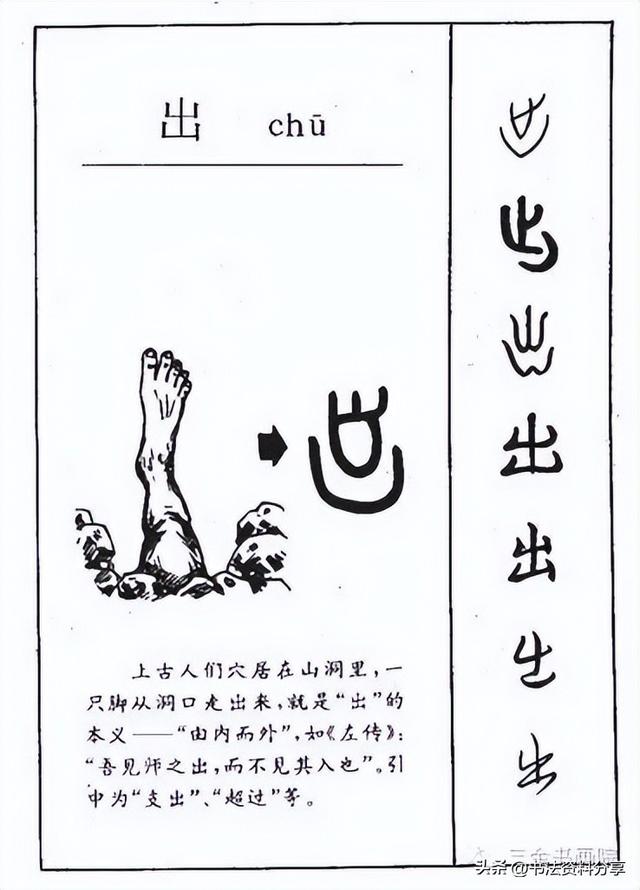 出 chū
上古人们穴居在山洞里，一
只脚从洞口走出来，就是“出”的
本义——“由内而外”，如《左传》：
“吾见师之出，而不见其入也”。引
申为“支出”、“超过”等。
出
出
出
出
出
出
出
出
三金书画院
头条@书法资料分享